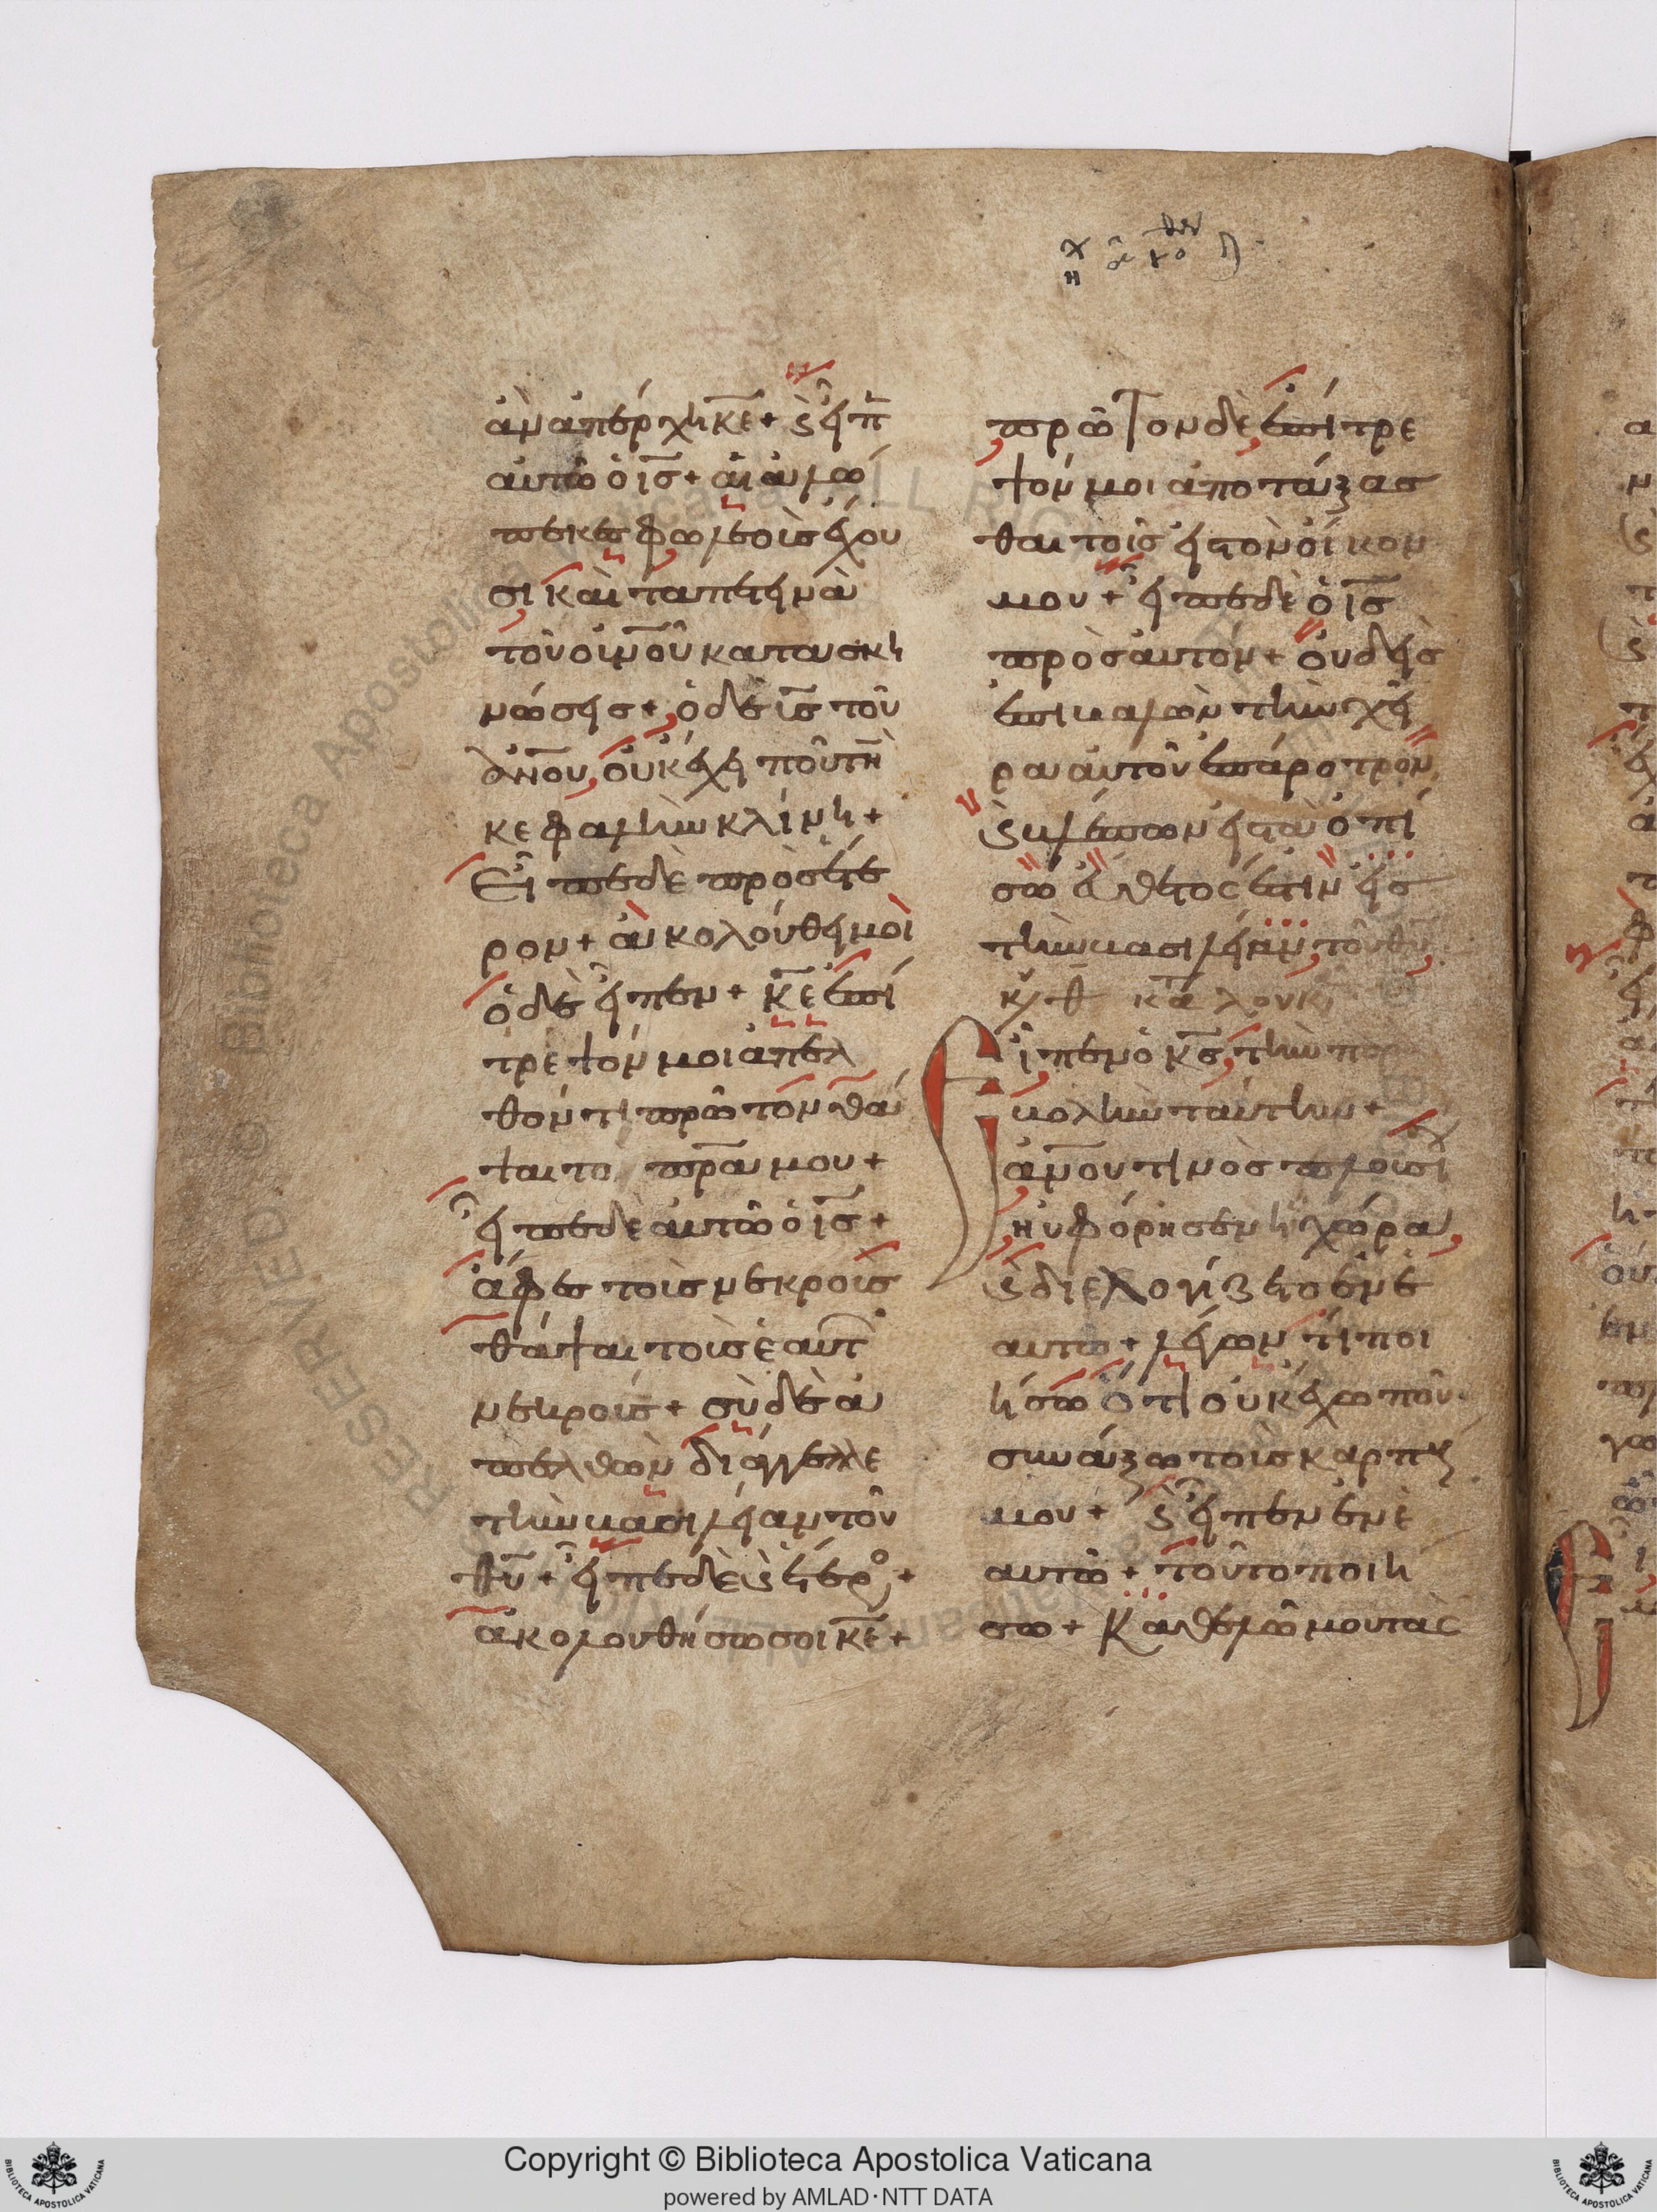 ἀν ἀπέρχη κ̅ε̅ + ϗ εἶπ̅
αὐτῶ ὁ ι̅σ̅ + αἱ ἀλώ
πεκες φωλεοὺς ἔχου
σι καὶ τὰ πετεινὰ
τοῦ ο̅υ̅ν̅ο̅υ̅ κατασκη
νώσεις + ὁ δὲ υ̅ς̅ τοῦ
α̅ν̅ο̅υ̅ οὐκ ἔχει ποῦ τὴν
κεφαλὴν κλίνη +
Εἶπε δὲ πρὸς ἕτε
ρον + ἀκολούθει μοι
ὁ δὲ εἶπεν + κ̅ε̅ ἐπί
τρεψόν μοι ἀπελ
θόντι πρῶτον θά
ψαι τὸν π̅ρ̅α̅ μου +
εἶπε δὲ αὐτῶ ὁ ι̅σ̅ +
ἄφες τοὺς νεκροὺς
θάψαι τοὺς ἑαυτ
νεκρούς + σὺ δὲ ἀ
πελθὼν διάγγελλε
τὴν βασιλείαν τοῦ
θ̅υ̅ + εἶπε δὲ ϗ ἕτερος +
ἀκολουθήσω σοι κ̅ε̅ +
πρῶτον δὲ ἐπίτρε
ψόν μοι ἀποτάξασ
θαι τοῖς εἰς τὸν οἶκον
μου + εἶπε δὲ ὁ ι̅σ̅
πρὸς αὐτόν + οὐδεὶς
ἐπιβαλὼν τὴν χεῖ
ρα αὐτοῦ ἐπ' ἄροτρον
ϗ βλέπων εἰς τὰ ὀπί
σω εὔθετός ἐστιν εἰς
τὴν βασιλείαν τοῦ θ̅υ̅
κυ θ κα λουκ
Εἶπεν ὁ κ̅ς̅ τὴν παρα
βολὴν ταύτην +
α̅ν̅ο̅υ̅ τινὸς πλουσί
ηὐφόρησεν ἡ χώρα
ϗ διελογίζετο ἐν ἑ
αυτῶ + λέγων τί ποι
ήσω ὅτι οὐκ ἔχω ποῦ
συνάξω τοὺς καρποὺς
μου + ϗ εἶπεν ἐν ἑ
αυτῶ + τοῦτο ποιή
σω + Καθελῶ μου τὰς
Copyright © Biblioteca Apostolica Vaticana
powered by AMLAD·NTT DATA